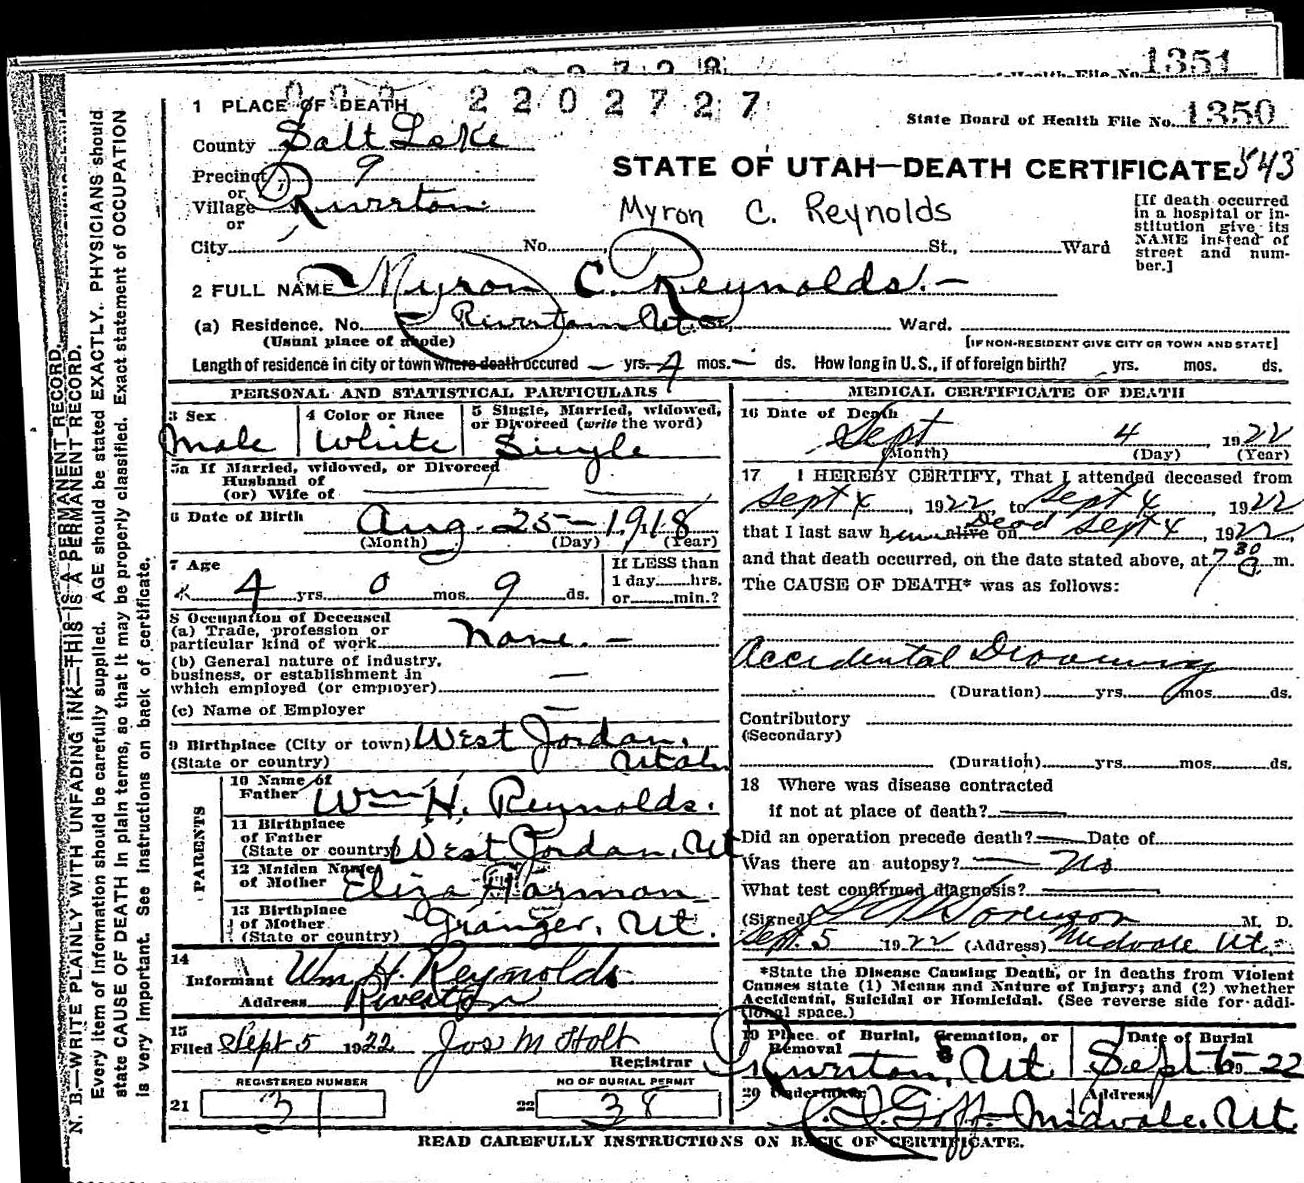 1351
State Board of Health File No. 1350
2202727
1 PLACE OF DEATH
County Salt Lake
Precinct 9
or
Village Riverton
or
City No. St., Ward
STATE OF UTAH—DEATH CERTIFICATE 543
Myron C. Reynolds
[If death occurred
in a hospital or in-
stitution give its
NAME instead of
street and num-
ber.]
2 FULL NAME Myron C. Reynolds.—
(a) Residence. No. Riverton Ut. St., Ward.
(Usual place of abode) [IF NON-RESIDENT GIVE CITY OR TOWN AND STATE]
Length of residence in city or town where death occured — yrs. 4 mos. — ds. How long in U.S., if of foreign birth? yrs. mos. ds.
PERSONAL AND STATISTICAL PARTICULARS
3 Sex
Male
4 Color or Race
White
5 Single, Married, widowed,
or Divorced (write the word)
Single
5a If Married, widowed, or Divorced
Husband of
(or) Wife of
6 Date of Birth Aug. 25—1918
(Month) (Day) (Year)
7 Age
4 yrs. 0 mos. 9 ds.
If LESS than
1 day hrs.
or min.?
8 Occupation of Deceased
(a) Trade, profession or
particular kind of work None.—
(b) General nature of industry,
business, or establishment in
which employed (or employer) —
(c) Name of Employer —
9 Birthplace (City or town) West Jordan,
(State or country) Utah
PARENTS
10 Name of
Father Wm H. Reynolds.
11 Birthplace
of Father
(State or country) West Jordan, Ut
12 Maiden Name
of Mother Eliza Harman
13 Birthplace
of Mother
(State or country) Granger, Ut.
14
Informant Wm H. Reynolds
Address Riverton
15
Filed Sept 5 1922 Jos M Holt
Registrar
REGISTERED NUMBER
21 31
NO OF BURIAL PERMIT
22 38
MEDICAL CERTIFICATE OF DEATH
16 Date of Death
Sept 4, 1922
(Month) (Day) (Year)
17 I HEREBY CERTIFY, That I attended deceased from
Sept 4, 1922, to Sept 4, 1922
that I last saw him alive on Dead Sept 4, 1922,
and that death occurred, on the date stated above, at 7 30 a m.
The CAUSE OF DEATH* was as follows:
Accidental Drowning
(Duration) yrs. mos. ds.
Contributory
(Secondary)
(Duration) yrs. mos. ds.
18 Where was disease contracted
if not at place of death?
Did an operation precede death? Date of
Was there an autopsy? — No
What test confirmed diagnosis?
(Signed) Sorenson M. D.
Sept. 5 1922 (Address) Midvale Ut.
*State the Disease Causing Death, or in deaths from Violent
Causes state (1) Means and Nature of Injury; and (2) whether
Accidental, Suicidal or Homicidal. (See reverse side for addi-
tional space.)
19 Place of Burial, Cremation, or
Removal
Riverton, Ut.
Date of Burial
Sept 6 1922
20 Undertaker Goff Address Midvale, Ut.
READ CAREFULLY INSTRUCTIONS ON BACK OF CERTIFICATE.
N. B.—WRITE PLAINLY WITH UNFADING INK—THIS IS A PERMANENT RECORD.
Every item of information should be carefully supplied. AGE should be stated EXACTLY. PHYSICIANS should
state CAUSE OF DEATH in plain terms, so that it may be properly classified. Exact statement of OCCUPATION
is very important. See instructions on back of certificate.